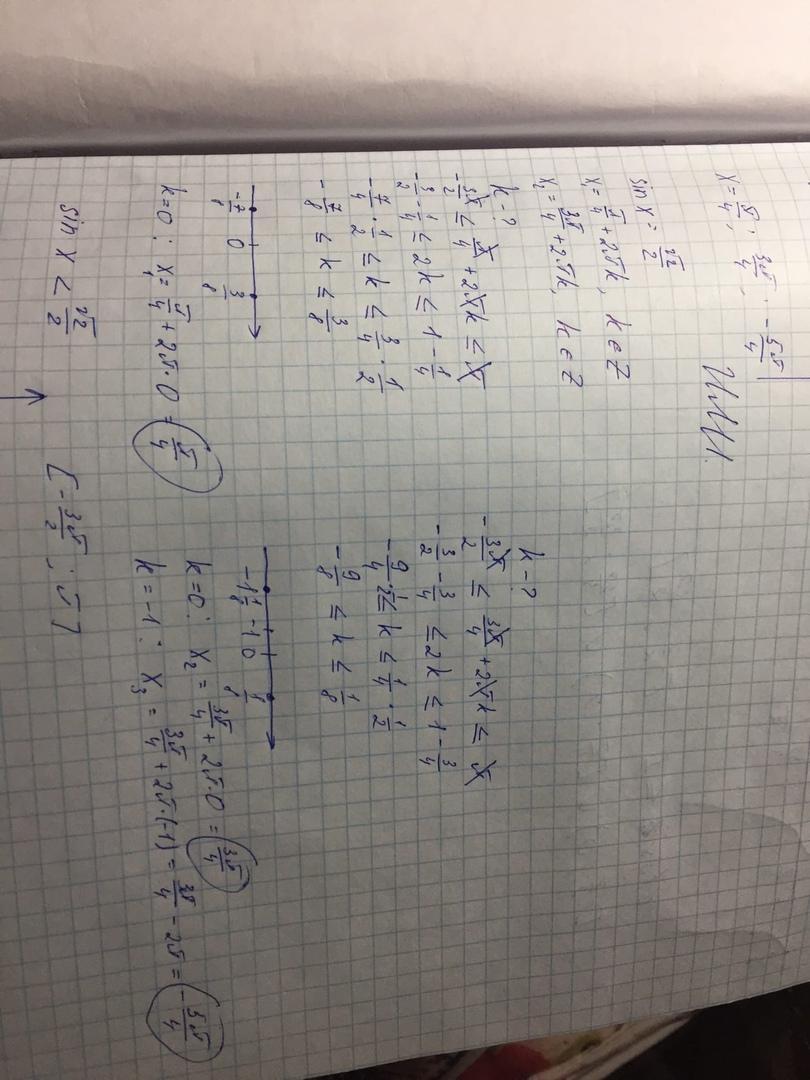 x = π/4; 3π/4; -5π/4
ИЛИ
sin x = √2/2
x₁ = π/4 + 2πk, k ∈ Z
x₂ = 3π/4 + 2πk, k ∈ Z
k-?
-3π/2 ≤ π/4 + 2πk ≤ π
-3/2 - 1/4 ≤ 2k ≤ 1 - 1/4
-7/4 · 1/2 ≤ k ≤ 3/4 · 1/2
-7/8 ≤ k ≤ 3/8
-7/8 0 3/8
k=0: x₁ = π/4 + 2π·0 = π/4
k-?
-3π/2 ≤ 3π/4 + 2πk ≤ π
-3/2 - 3/4 ≤ 2k ≤ 1 - 3/4
-9/4 · 1/2 ≤ k ≤ 1/4 · 1/2
-9/8 ≤ k ≤ 1/8
-1 1/8 -1 0 1/8
k=0: x₂ = 3π/4 + 2π·0 = 3π/4
k=-1: x₃ = 3π/4 + 2π·(-1) = 3π/4 - 2π = -5π/4
sin x < √2/2 [-3π/2; π]